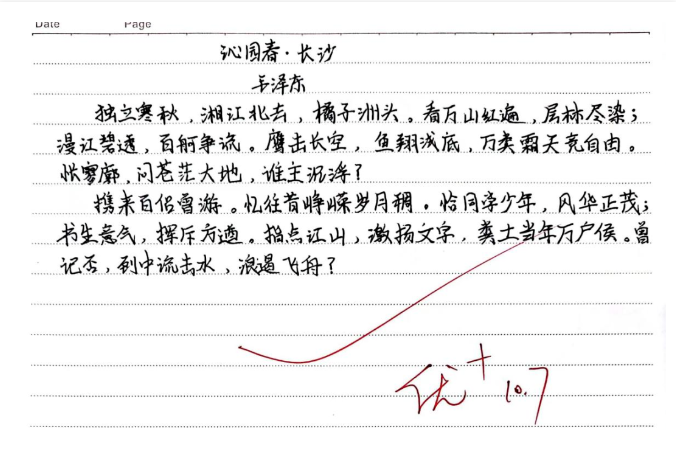 Date Page
沁园春·长沙
毛泽东
独立寒秋,湘江北去,橘子洲头。看万山红遍,层林尽染;
漫江碧透,百舸争流。鹰击长空,鱼翔浅底,万类霜天竞自由。
怅寥廓,问苍茫大地,谁主沉浮?
携来百侣曾游。忆往昔峥嵘岁月稠。恰同学少年,风华正茂;
书生意气,挥斥方遒。指点江山,激扬文字,粪土当年万户侯。曾
记否,到中流击水,浪遏飞舟?
优+ 10.7